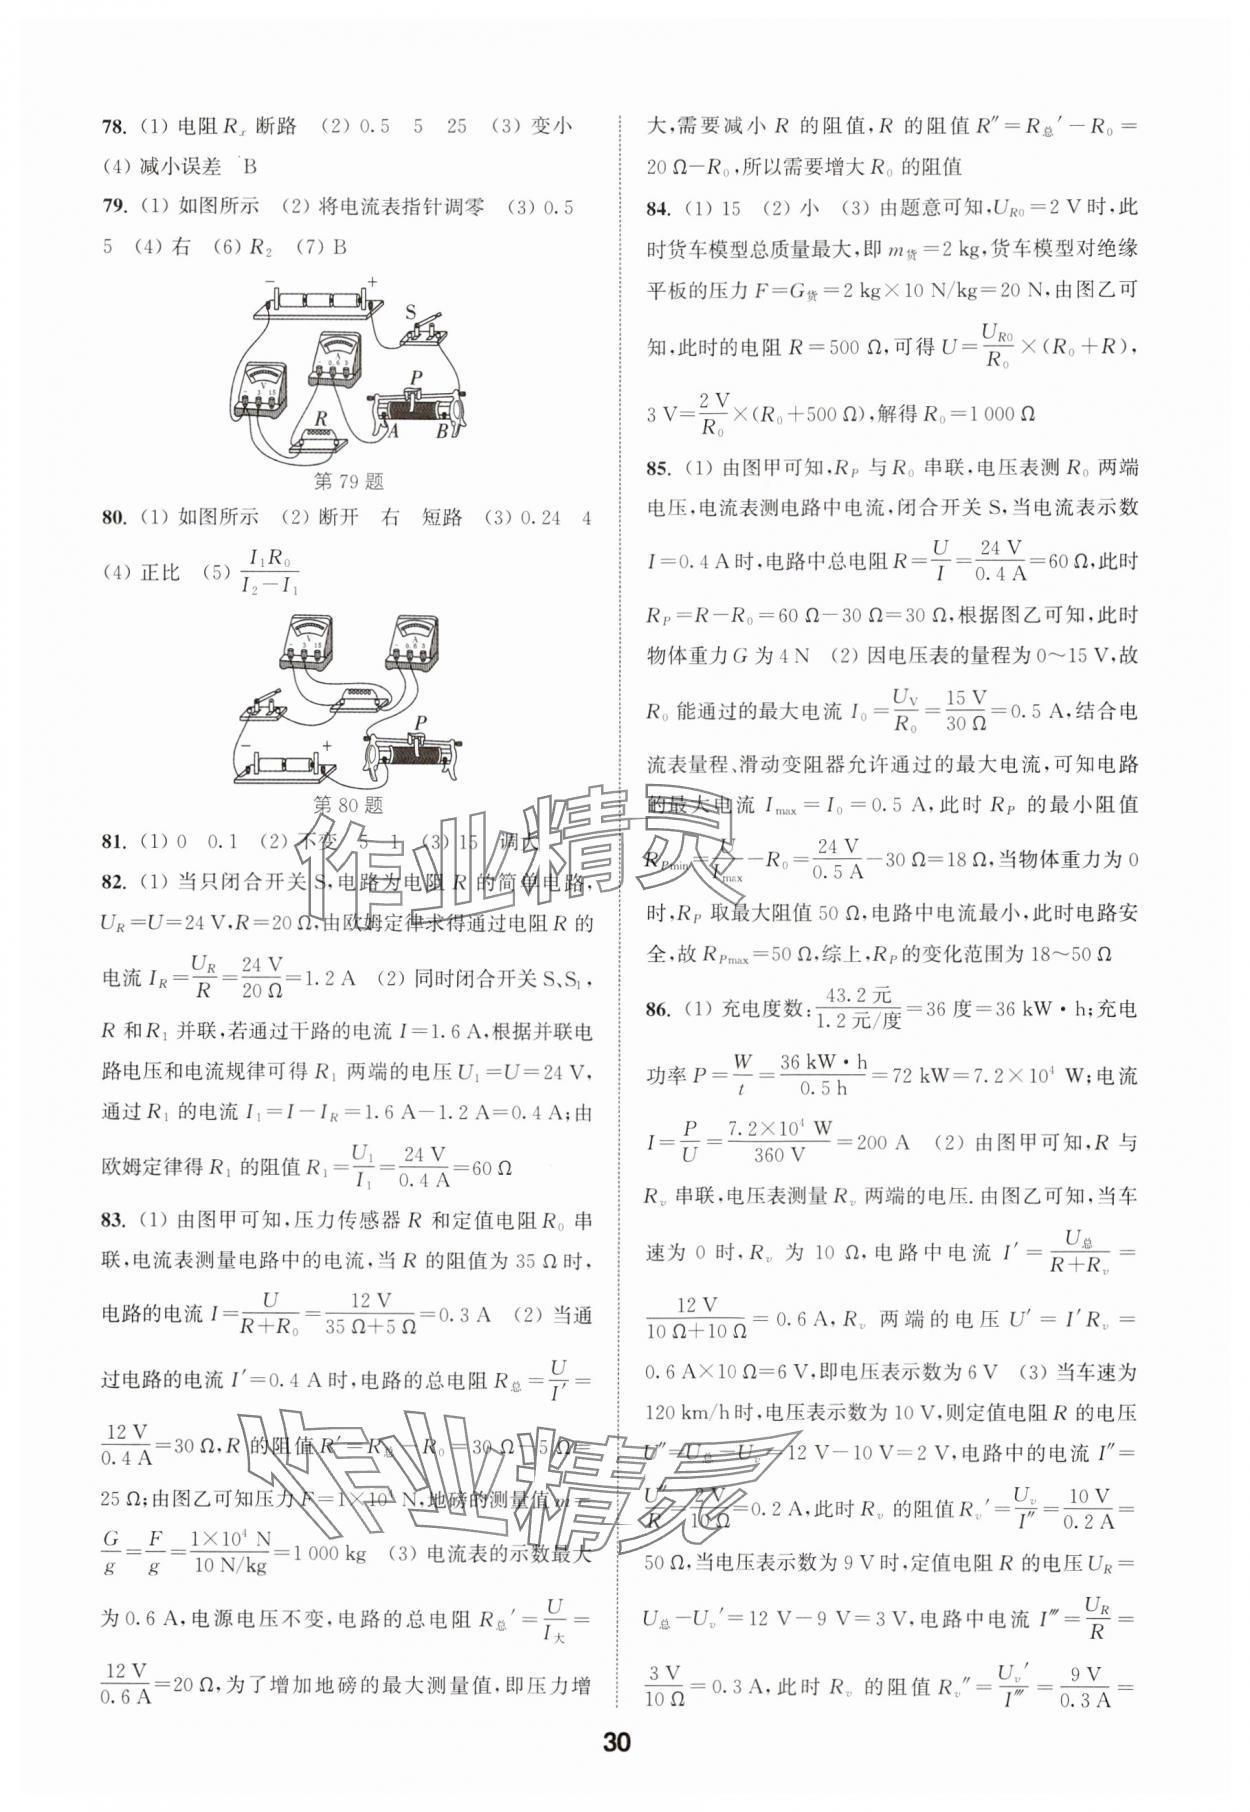 78. (1) 电阻 Rₓ 断路 (2) 0.5 5 25 (3) 变小
(4) 减小误差 B
79. (1) 如图所示 (2) 将电流表指针调零 (3) 0.5
5 (4) 右 (6) R₂ (7) B
− + S
V − 3 15
A − 0.6 3
P R A B
第 79 题
80. (1) 如图所示 (2) 断开 右 短路 (3) 0.24 4
(4) 正比 (5) I₁R₀/(I₂−I₁)
V − 3 15
A − 0.6 3
P
− +
第 80 题
81. (1) 0 0.1 (2) 不变 5 1 (3) 15 调大
82. (1) 当只闭合开关 S,电路为电阻 R 的简单电路,
U_R=U=24 V,R=20 Ω,由欧姆定律求得通过电阻 R 的
电流 I_R=U_R/R=24 V/20 Ω=1.2 A (2) 同时闭合开关 S、S₁,
R 和 R₁ 并联,若通过干路的电流 I=1.6 A,根据并联电
路电压和电流规律可得 R₁ 两端的电压 U₁=U=24 V,
通过 R₁ 的电流 I₁=I−I_R=1.6 A−1.2 A=0.4 A;由
欧姆定律得 R₁ 的阻值 R₁=U₁/I₁=24 V/0.4 A=60 Ω
83. (1) 由图甲可知,压力传感器 R 和定值电阻 R₀ 串
联,电流表测量电路中的电流,当 R 的阻值为 35 Ω时,
电路的电流 I=U/(R+R₀)=12 V/(35 Ω+5 Ω)=0.3 A (2) 当通
过电路的电流 I′=0.4 A 时,电路的总电阻 R总=U/I′=
12 V/0.4 A=30 Ω,R 的阻值 R′=R总−R₀=30 Ω−5 Ω=
25 Ω;由图乙可知压力 F=1×10⁴ N,地磅的测量值 m=
G/g=F/g=1×10⁴ N/10 N/kg=1 000 kg (3) 电流表的示数最大
为 0.6 A,电源电压不变,电路的总电阻 R总′=U/I大=
12 V/0.6 A=20 Ω,为了增加地磅的最大测量值,即压力增
大,需要减小 R 的阻值,R 的阻值 R″=R总′−R₀=
20 Ω−R₀,所以需要增大 R₀ 的阻值
84. (1) 15 (2) 小 (3) 由题意可知,U_R0=2 V 时,此
时货车模型总质量最大,即 m货=2 kg,货车模型对绝缘
平板的压力 F=G货=2 kg×10 N/kg=20 N,由图乙可
知,此时的电阻 R=500 Ω,可得 U=U_R0/R₀×(R₀+R),
3 V=2 V/R₀×(R₀+500 Ω),解得 R₀=1 000 Ω
85. (1) 由图甲可知,R_P 与 R₀ 串联,电压表测 R₀ 两端
电压,电流表测电路中电流,闭合开关 S,当电流表示数
I=0.4 A 时,电路中总电阻 R=U/I=24 V/0.4 A=60 Ω,此时
R_P=R−R₀=60 Ω−30 Ω=30 Ω,根据图乙可知,此时
物体重力 G 为 4 N (2) 因电压表的量程为 0～15 V,故
R₀ 能通过的最大电流 I₀=U_V/R₀=15 V/30 Ω=0.5 A,结合电
流表量程、滑动变阻器允许通过的最大电流,可知电路
的最大电流 I_max=I₀=0.5 A,此时 R_P 的最小阻值
R_Pmin=U/I_max−R₀=24 V/0.5 A−30 Ω=18 Ω,当物体重力为 0
时,R_P 取最大阻值 50 Ω,电路中电流最小,此时电路安
全,故 R_Pmax=50 Ω,综上,R_P的变化范围为 18～50 Ω
86. (1) 充电度数:43.2 元/1.2 元/度=36 度=36 kW·h;充电
功率 P=W/t=36 kW·h/0.5 h=72 kW=7.2×10⁴ W;电流
I=P/U=7.2×10⁴ W/360 V=200 A (2) 由图甲可知,R 与
Rᵥ 串联,电压表测量 Rᵥ 两端的电压. 由图乙可知,当车
速为 0 时,Rᵥ 为 10 Ω,电路中电流 I′=U总/(R+Rᵥ)=
12 V/(10 Ω+10 Ω)=0.6 A,Rᵥ 两端的电压 U′=I′Rᵥ=
0.6 A×10 Ω=6 V,即电压表示数为 6 V (3) 当车速为
120 km/h 时,电压表示数为 10 V,则定值电阻 R 的电压
U″=U总−Uᵥ=12 V−10 V=2 V,电路中的电流 I″=
U″/R=2 V/10 Ω=0.2 A,此时 Rᵥ 的阻值 Rᵥ′=Uᵥ/I″=10 V/0.2 A=
50 Ω,当电压表示数为 9 V 时,定值电阻 R 的电压 U_R=
U总−Uᵥ′=12 V−9 V=3 V,电路中电流 I‴=U_R/R=
3 V/10 Ω=0.3 A,此时 Rᵥ 的阻值 Rᵥ″=Uᵥ′/I‴=9 V/0.3 A=
30
作业精灵
作业精灵